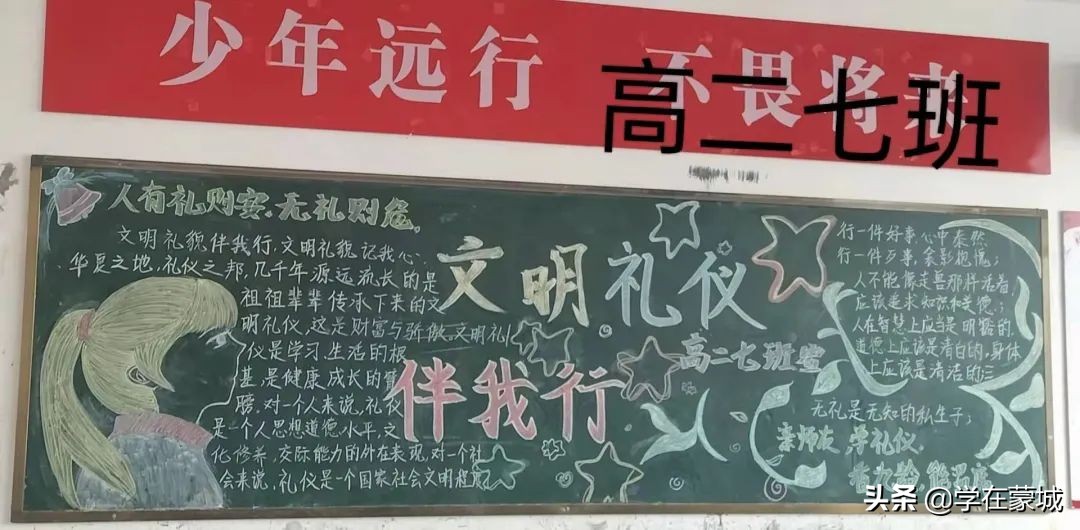 少年远行 不畏将来
高二七班
人有礼则安，无礼则危。
文明礼貌伴我行，文明礼貌记我心
华夏之地，礼仪之邦，几千年源远流长的是
祖祖辈辈传承下来的文
明礼仪，这是财富与骄傲。文明礼
仪是学习、生活的根
基，是健康成长的臂
膀。对一个人来说，礼仪
是一个人思想道德水平，文
化修养，交际能力的外在表现，对一个社
会来说，礼仪是一个国家社会文明程度
文明礼仪
伴我行
高二七班宣
行一件好事，心中泰然
行一件歹事，衾影抱愧；
人不能像走兽那样活着，
应该追求知识和美德；
人在智慧上应当是明豁的，
道德上应该是清白的，身体
上应该是清洁的
无礼是无知的私生子；
亲师友，学礼仪
香九龄，能温席
头条 @学在蒙城